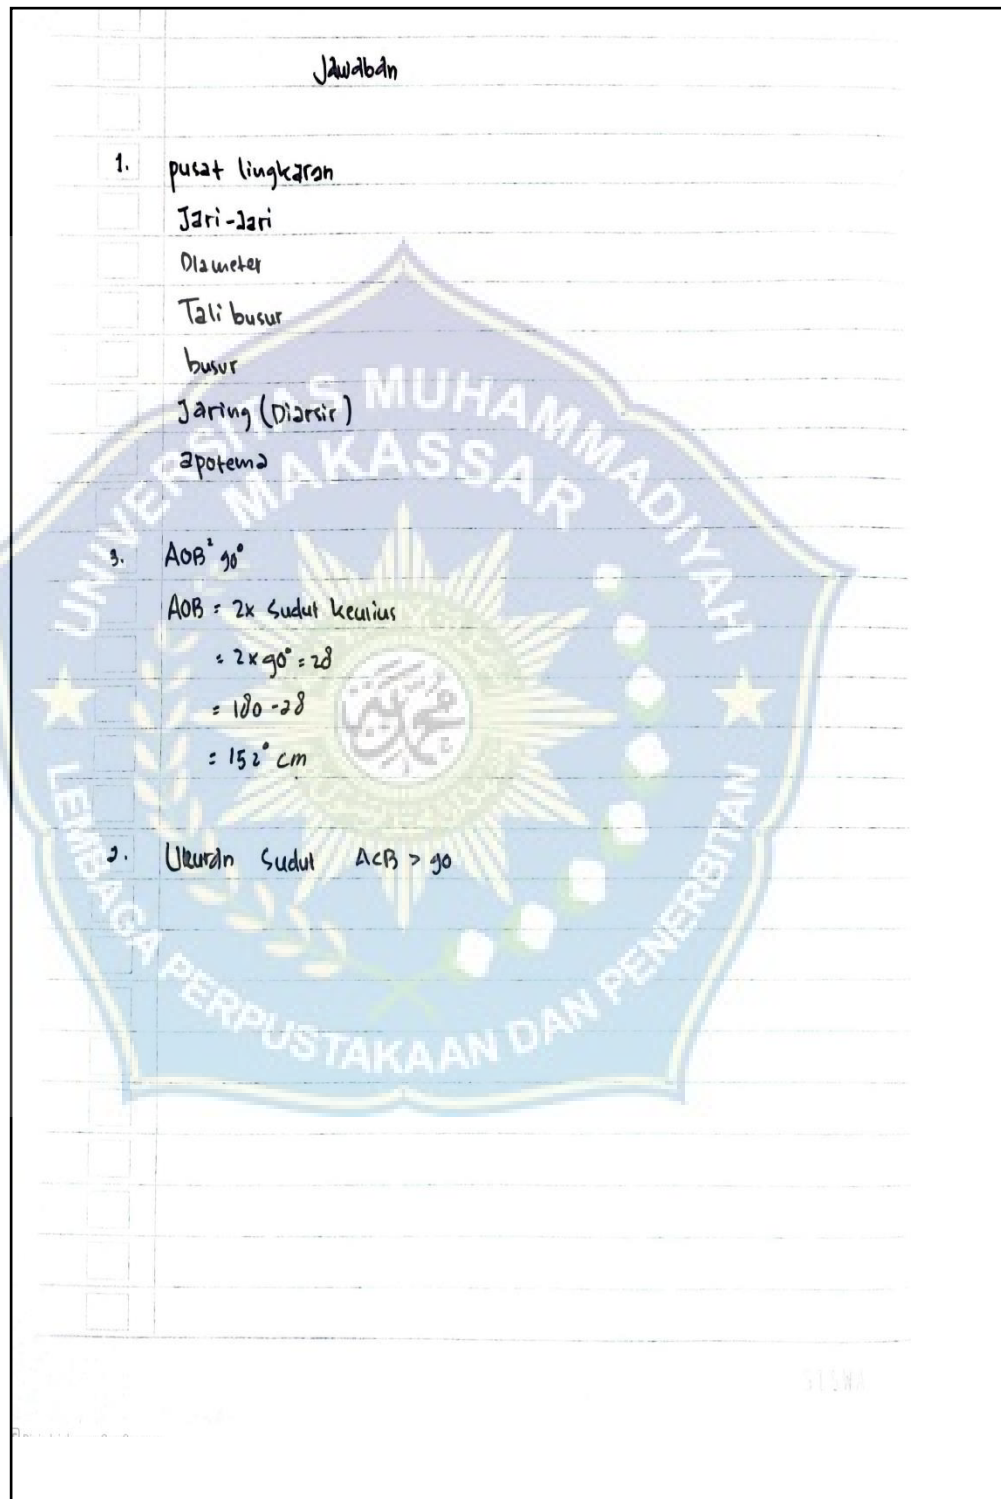 Jawaban
1. pusat lingkaran
Jari-Jari
Diameter
Tali busur
busur
Jaring (Diarsir)
apotema
3. AOB² 90°
AOB = 2x Sudut keulius
= 2 x 90° = 28
= 180 - 28
= 152° cm
2. Ukuran Sudut ACB > 90
UNIVERSITAS MUHAMMADIYAH
MAKASSAR
LEMBAGA PERPUSTAKAAN DAN PENERBITAN